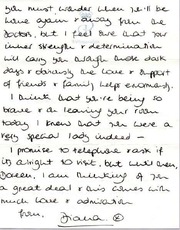 you must wonder when you'll be
home again & away from the
doctors, but I feel sure that your
inner strength & determination
will carry you through those dark
days & obviously the love & support
of friends & family helps enormously.
I think that you're being so
brave & on leaving your room
today I knew that you were a
very special lady indeed –
I promise to telephone & ask if
its alright to visit, but until then,
I am thinking of you
a great deal & this comes with
much love & admiration
from, Diana